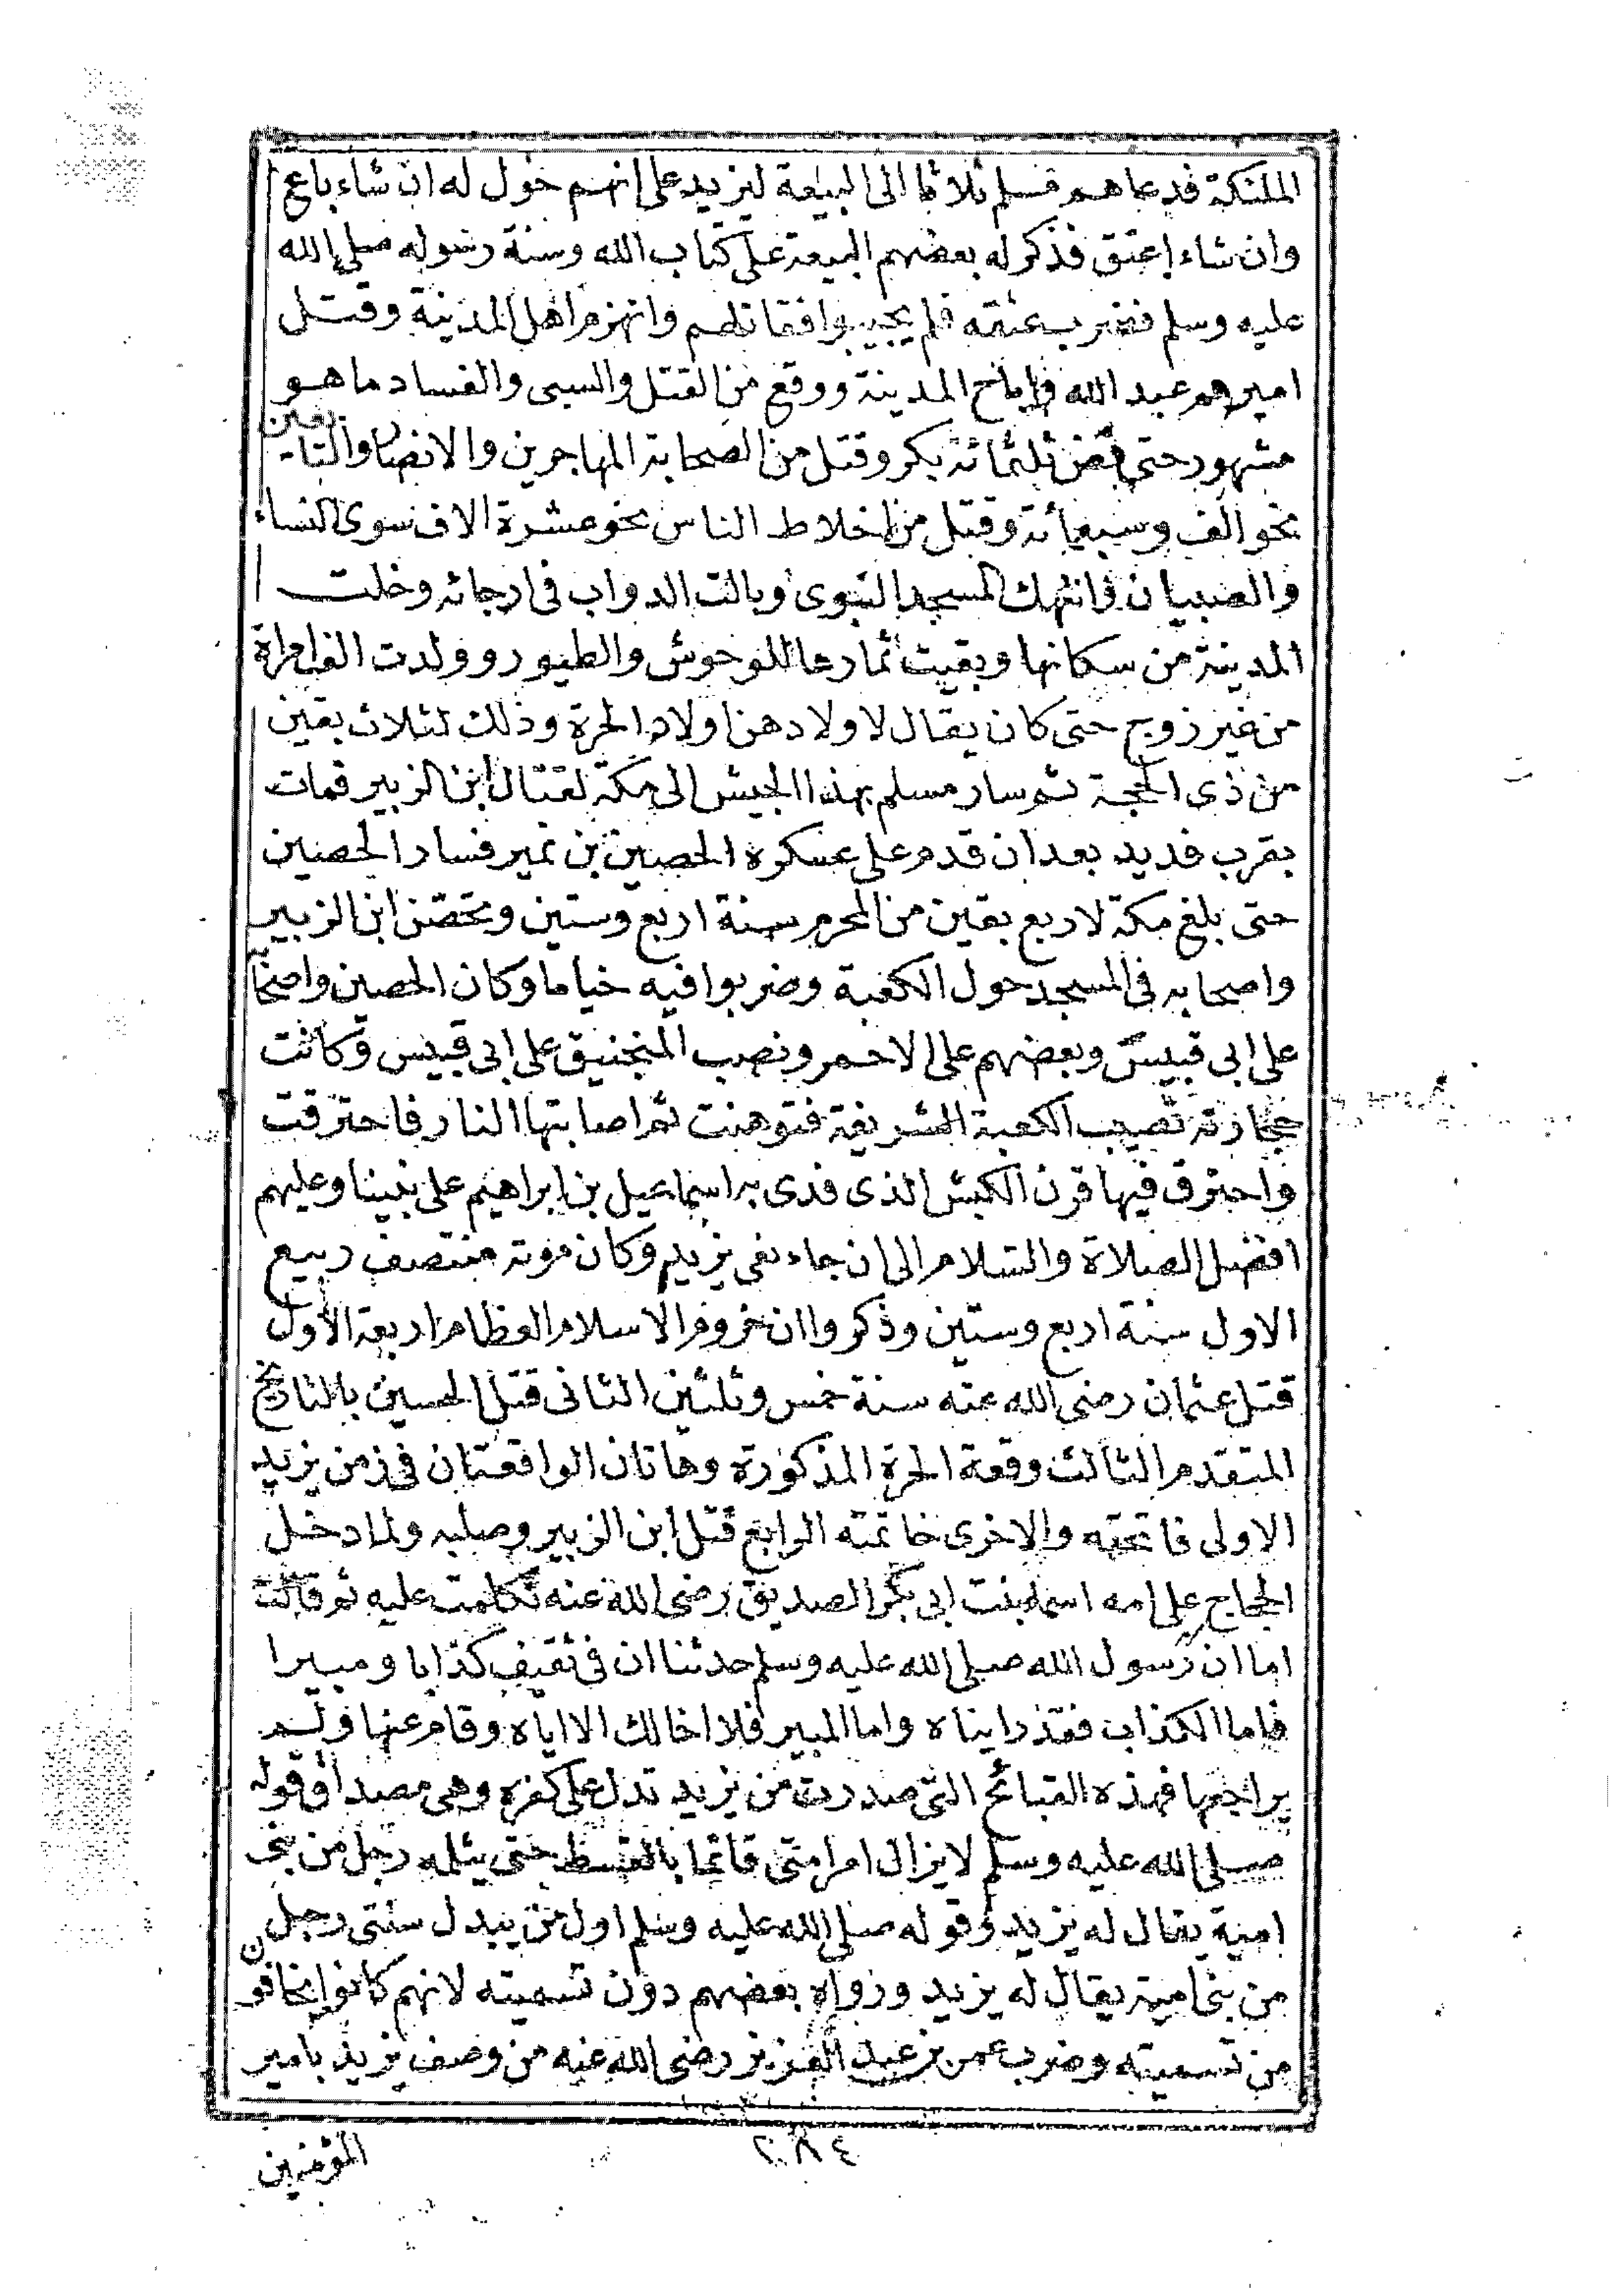 الملئكة فدعاهم مسلم ثلاثا الى البيعة ليزيد على انهم خول له ان شاء باع
وان شاء اعتق فذكر له بعضهم البيعة على كتاب الله وسنة رسوله صلى الله
عليه وسلم فضرب عنقه فلم يجيبوا فقاتلهم وانهزم اهل المدينة وقتل
اميرهم عبد الله فاباح المدينة ووقع من القتل والسبى والفساد ما هو
مشهور حتى فض ثلثمائة بكر وقتل من الصحابة المهاجرين والانصار والتابعين
نحو الف وسبعمائة وقتل من اخلاط الناس نحو عشرة الاف سوى النساء
والصبيان وانتهك المسجد النبوى وبالت الدواب فى ارجائه وخلت
المدينة من سكانها وبقيت ثمارها للوحوش والطيور وولدت الف امراة
من غير زوج حتى كان يقال لاولادهن اولاد الحرة وذلك لثلاث بقين
من ذى الحجة ثم سار مسلم بهذا الجيش الى مكة لقتال ابن الزبير فمات
بقرب قديد بعد ان قدم على عسكره الحصين بن نمير فسار الحصين
حتى بلغ مكة لاربع بقين من المحرم سنة اربع وستين وتحصن ابن الزبير
واصحابه فى المسجد حول الكعبة وضربوا فيه خياما وكان الحصين واصحابه
على ابى قبيس وبعضهم على الاحمر ونصب المنجنيق على ابى قبيس وكانت
حجارته تصيب الكعبة الشريفة فتوهنت ثم اصابتها النار فاحترقت
واحترق فيها قرن الكبش الذى فدى به اسماعيل بن ابراهيم على نبينا وعليهم
افضل الصلاة والسلام الى ان جاء نعى يزيد وكان موته منتصف ربيع
الاول سنة اربع وستين وذكروا ان خروم الاسلام العظام اربعة الاول
قتل عثمان رضى الله عنه سنة خمس وثلثين الثانى قتل الحسين بالتاريخ
المتقدم الثالث وقعة الحرة المذكورة وهاتان الواقعتان فى زمن يزيد
الاولى فاتحته والاخرى خاتمته الرابع قتل ابن الزبير وصلبه ولما دخل
الحجاج على امه اسماء بنت ابى بكر الصديق رضى الله عنه تكلمت عليه ثم قالت
اما ان رسول الله صلى الله عليه وسلم حدثنا ان فى ثقيف كذابا ومبيرا
فاما الكذاب فقد رايناه واما المبير فلا اخالك الا اياه وقام عنها ولم
يراجعها فهذه القبائح التى صدرت من يزيد تدل على كفره وهى مصداق قوله
صلى الله عليه وسلم لا يزال امر امتى قائما بالقسط حتى يثلمه رجل من بنى
امية يقال له يزيد وقوله صلى الله عليه وسلم اول من يبدل سنتى رجل
من بنى امية يقال له يزيد ورواه بعضهم دون تسميته لانهم كانوا يخافون
من تسميته وضرب عمر بن عبد العزيز رضى الله عنه من وصف يزيد بامير
المؤمنين
٢٨٤